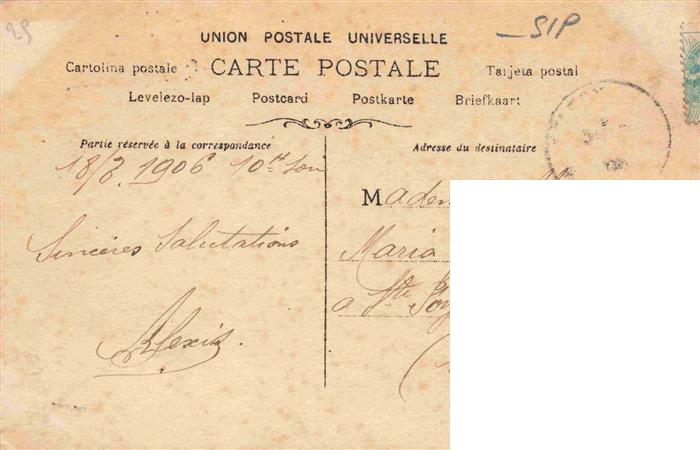 25
SIP
UNION POSTALE UNIVERSELLE
Cartolina postale CARTE POSTALE Tarjeta postal
Levelezo-lap Postcard Postkarte Briefkaart
Partie réservée à la correspondance
18/8.1906 10
Sincères Salutations
Alexis.
Adresse du destinataire
Madem
Maria
a Ste Foy